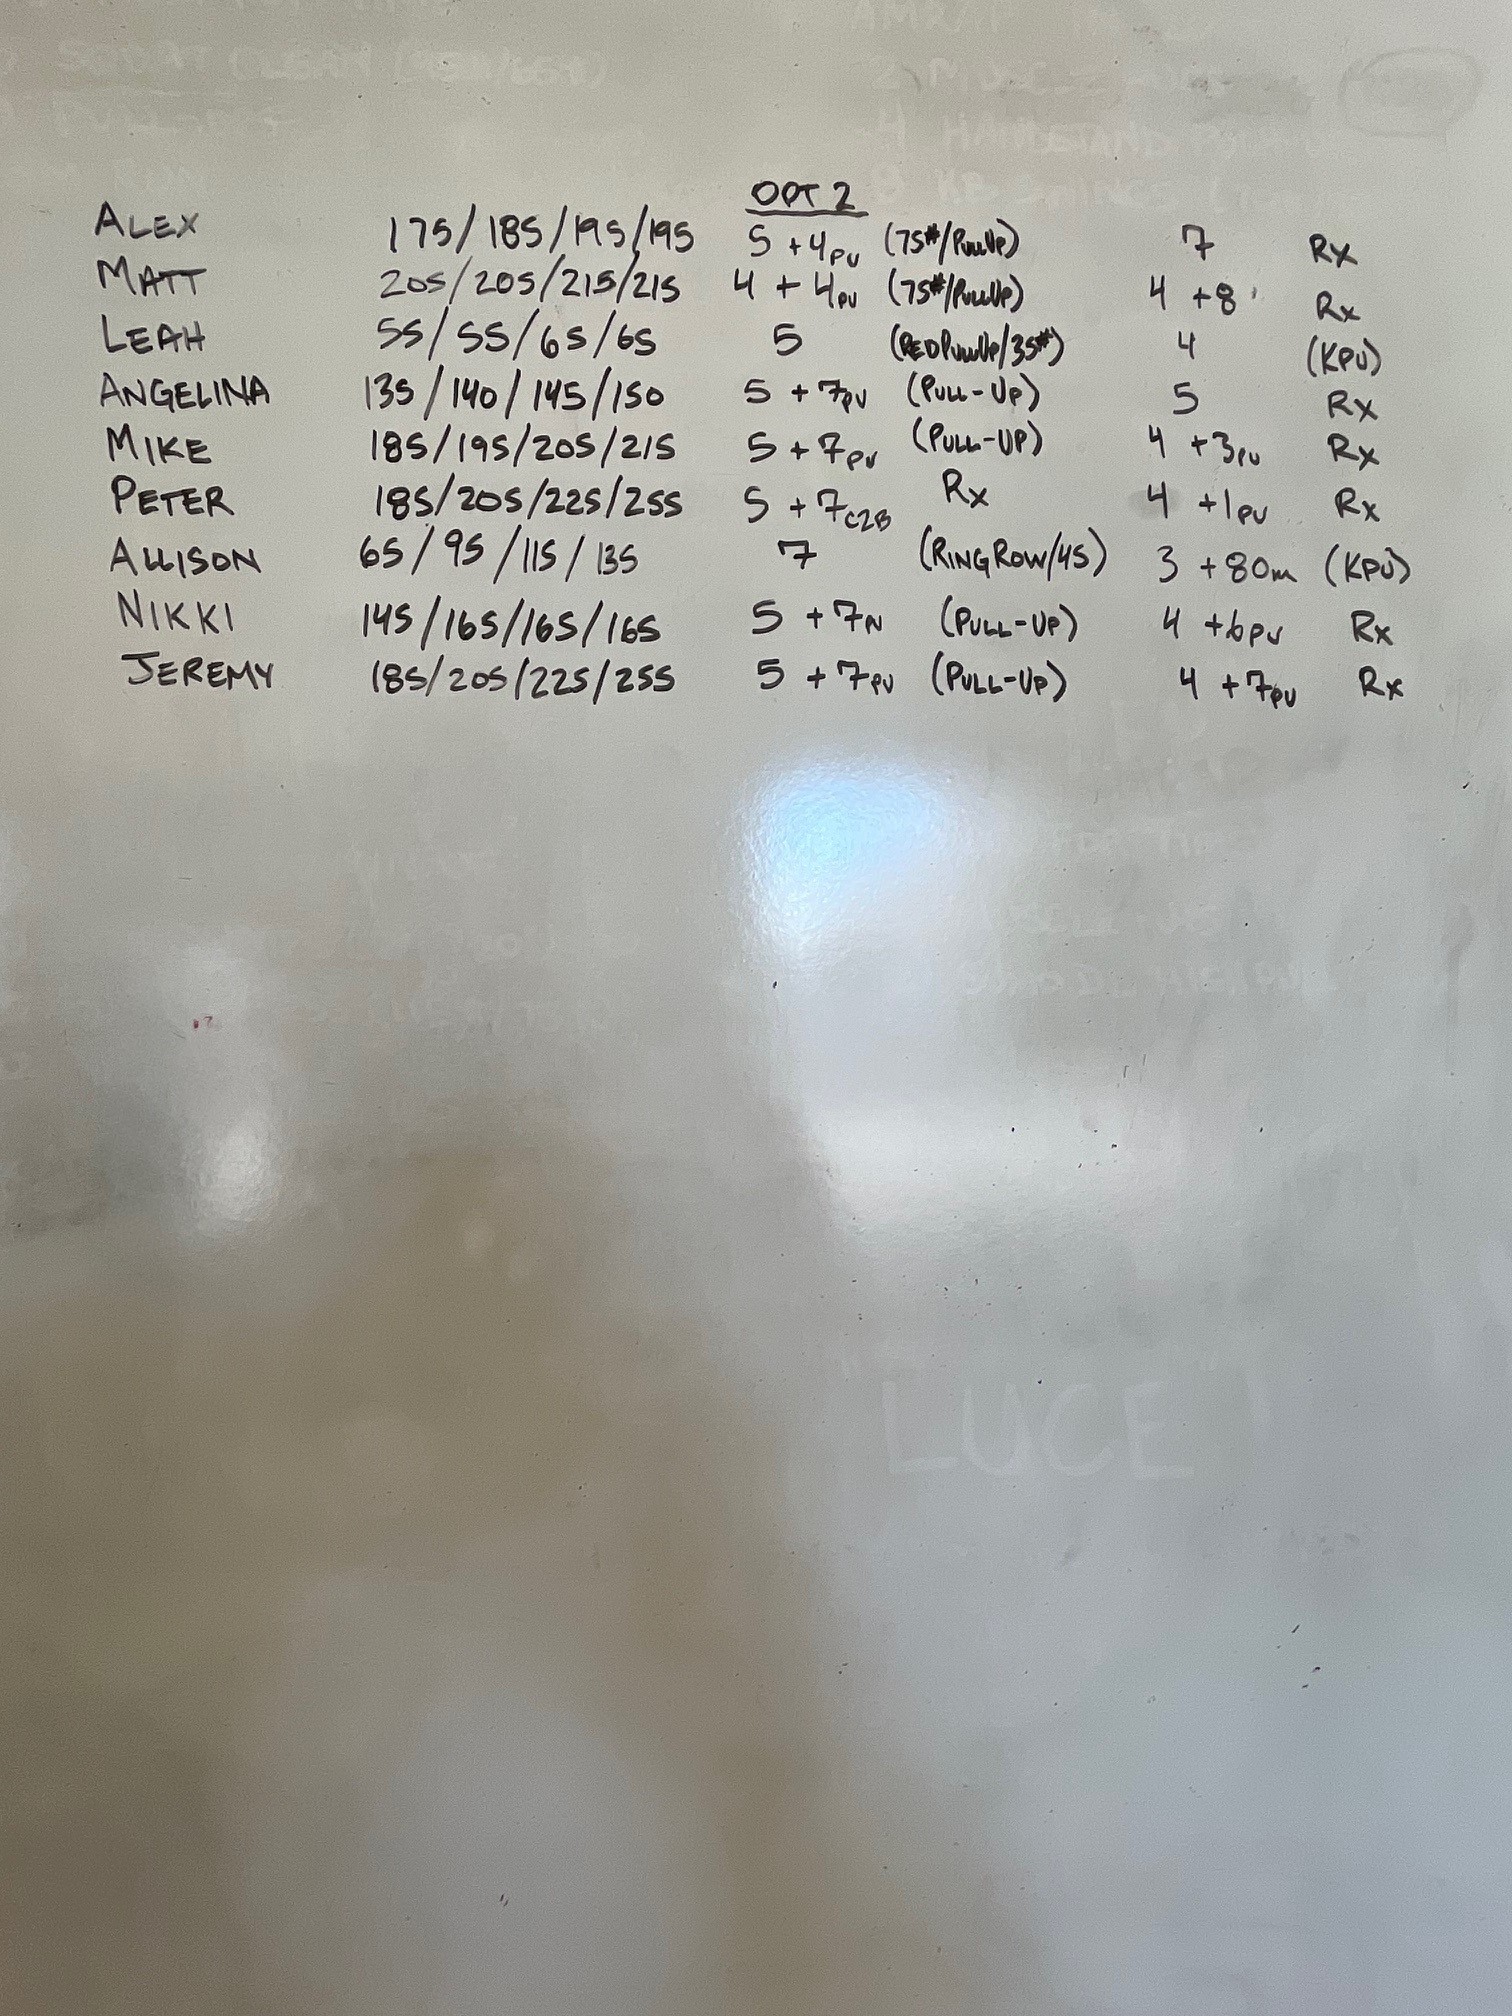 OPT 2
ALEX 175/185/195/195 5 + 4PU (75#/PULLUP) 7 Rx
MATT 205/205/215/215 4 + 4PU (75#/PULLUP) 4 +8 Rx
LEAH 55/55/65/65 5 (REDPULLUP/35#) 4 (KPU)
ANGELINA 135/140/145/150 5 + 7PU (PULL-UP) 5 Rx
MIKE 185/195/205/215 5 + 7PU (PULL-UP) 4 +3PU Rx
PETER 185/205/225/255 5 + 7C2B Rx 4 +1PU Rx
ALLISON 65/95/115/135 7 (RING ROW/45) 3 +80m (KPU)
NIKKI 145/165/165/165 5 + 7PU (PULL-UP) 4 +6PU Rx
JEREMY 185/205/225/255 5 + 7PU (PULL-UP) 4 +7PU Rx
"LUCE"